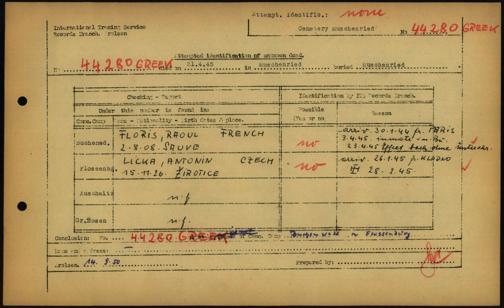 Attempt. Identific.: none
International Tracing Service
Records Branch. Arolsen
Cemetery Muschenried No 44280 GREEK
Attempted identification of unknown dead.
No. 44280 GREEK died on 21.4.45 in Muschenried buried Muschenried
Checking - Report
Identification by ITS Records Branch.
Under this number is found in:
Conc.Camp Name - Nationality - Birth date & place.
Possible (Yes or no)
Reason
Buchenwd. FLORIS, RAOUL FRENCH
2-8-08. SAUVE
no
arriv. 30.1.44 fr. PARIS
3.4.45 inmate in Bu.
23.4.45 Effect.
Flossenbg. LICKA, ANTONIN CZECH
15-11-26. ZIROTICE
no
arriv. 26.1.45 fr. KLADNO
28.2.45
Auschwitz n.f.
Gr.Rosen n.f.
Conclusion: No. 44280 GREEK Conc. Camp in Flossenbürg
Arolsen 14. 9.50
Prepared by: